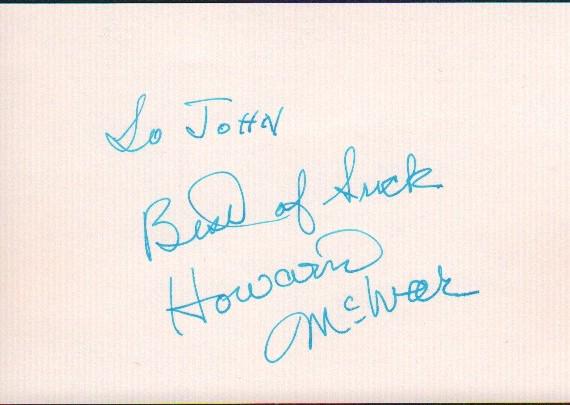 To JOHN
Best of Luck
Howard
McNear